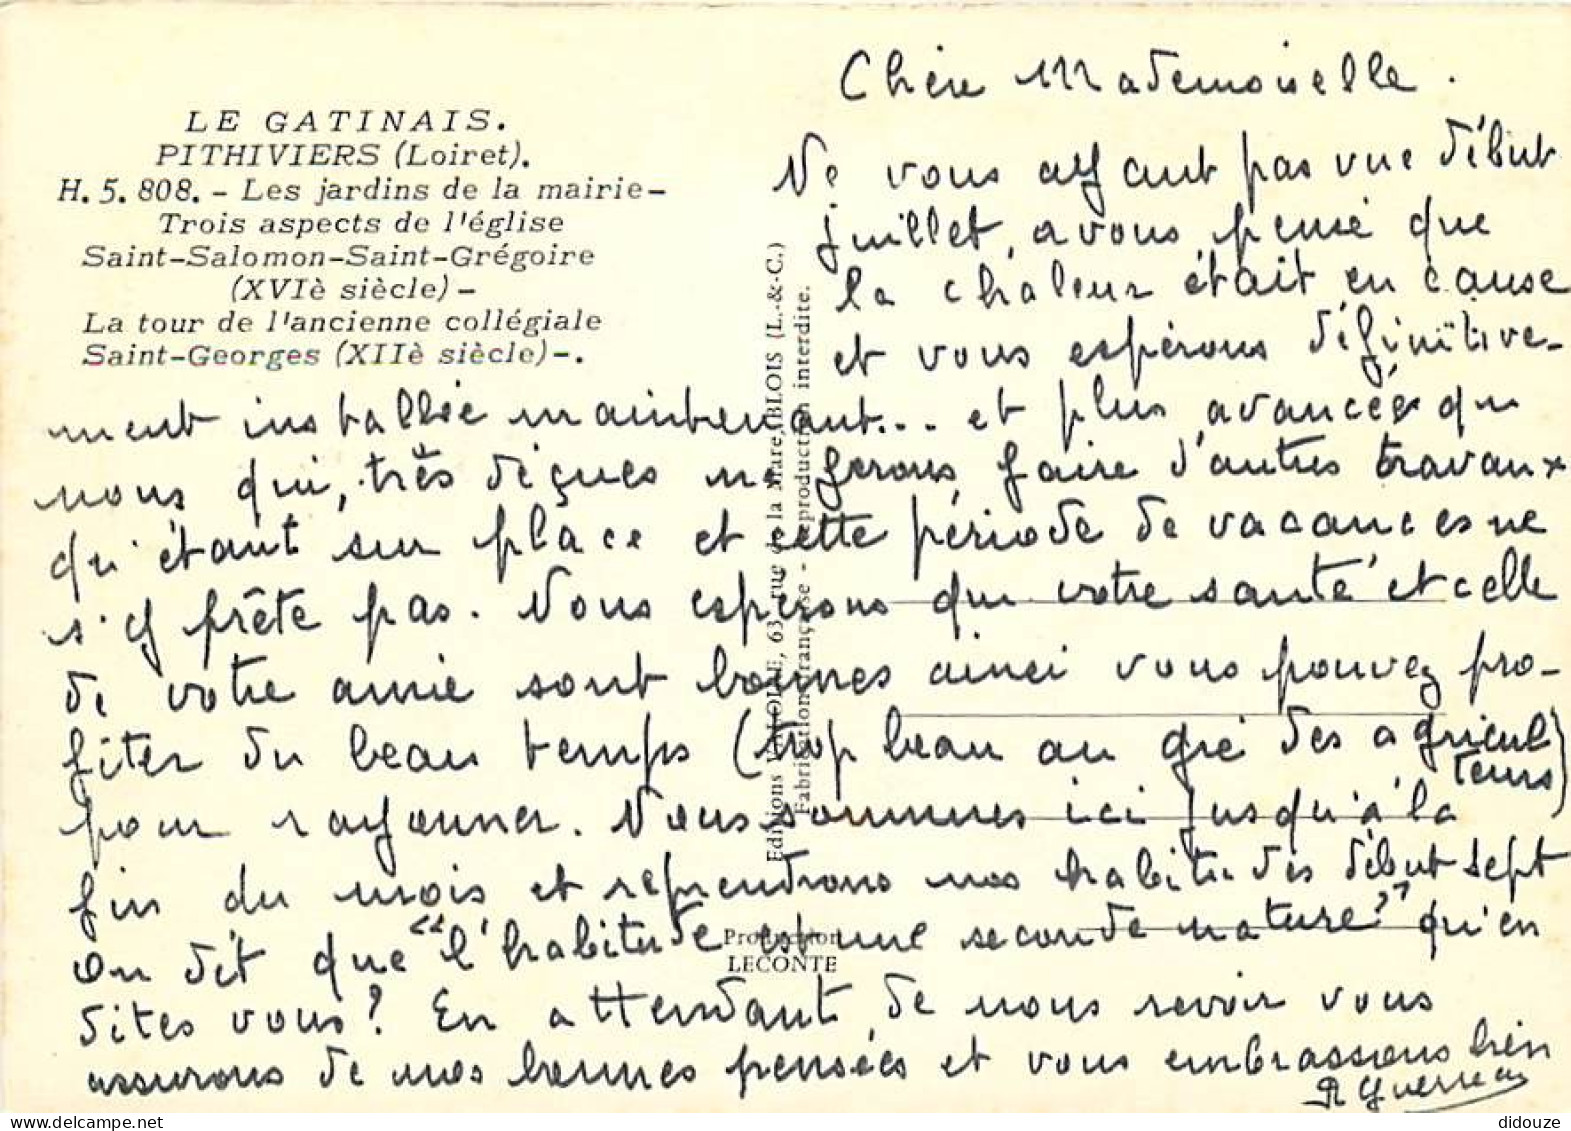 LE GATINAIS.
PITHIVIERS (Loiret).
H. 5. 808. - Les jardins de la mairie-
Trois aspects de l'église
Saint-Salomon-Saint-Grégoire
(XVIè siècle) -
La tour de l'ancienne collégiale
Saint-Georges (XIIè siècle) -.
Chère Mademoiselle.
Ne vous ayant pas vue début
juillet, avons pensé que
la chaleur était en cause
et vous espérons définitive-
ment installée maintenant... et plus avancée que
nous qui, très déçues ne ferons faire d'autres travaux
qu'étant sur place et cette période de vacances ne
s'y prête pas. Nous espérons que votre santé et celle
de votre amie sont bonnes ainsi vous pouvez pro-
fiter du beau temps (trop beau au gré des agricul
teurs)
pour rayonner. Nous sommes ici jusqu'à la
fin du mois et reprendrons nos habitudes début sept
On dit que "l'habitude est une seconde nature" qu'en
dites vous? En attendant de nous revoir vous
assurons de nos bonnes pensées et vous embrassons bien
R Guerreau
Editions VALOIRE, 63, rue de la Mare, BLOIS (L.-&-C.)
Fabrication française - Reproduction interdite.
Production
LECONTE
didouze